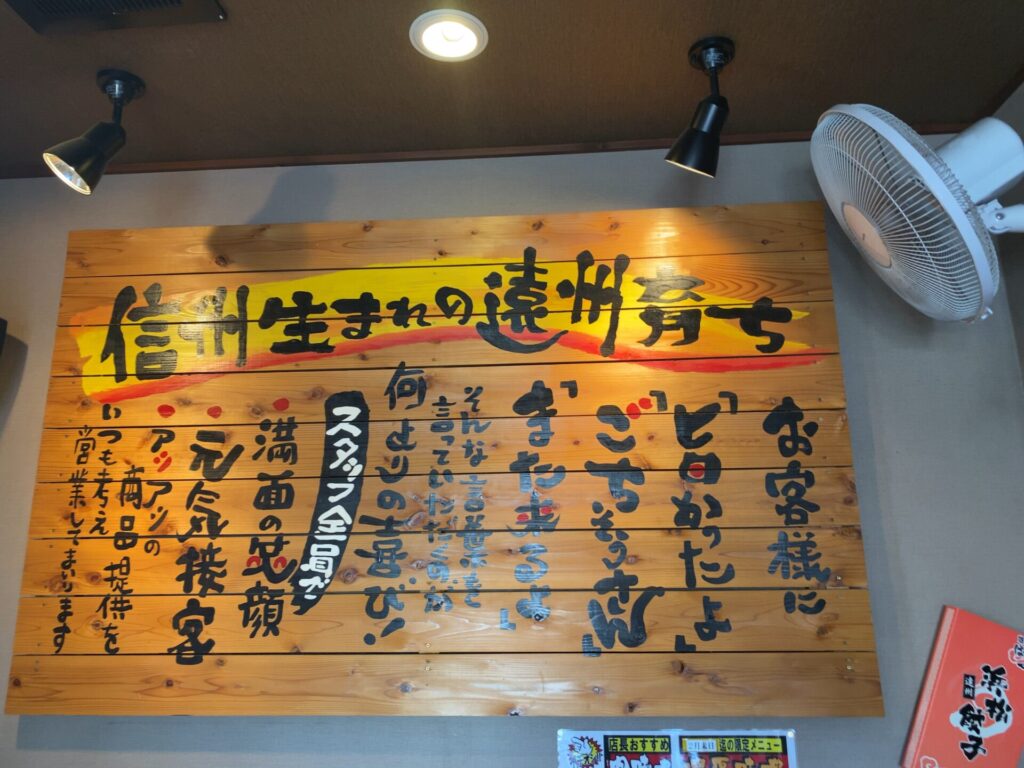 信州生まれの遠州育ち
お客様に
「旨かったよ」
「ごちそうさん」
「また来るよ」
そんな言葉を
言っていただくのが
何よりの喜び!
スタッフ全員が
・満面の笑顔
・元気接客
・アッツアツの
商品提供を
いつも考え
営業してまいります
遠州
浜松
餃子
店長おすすめ